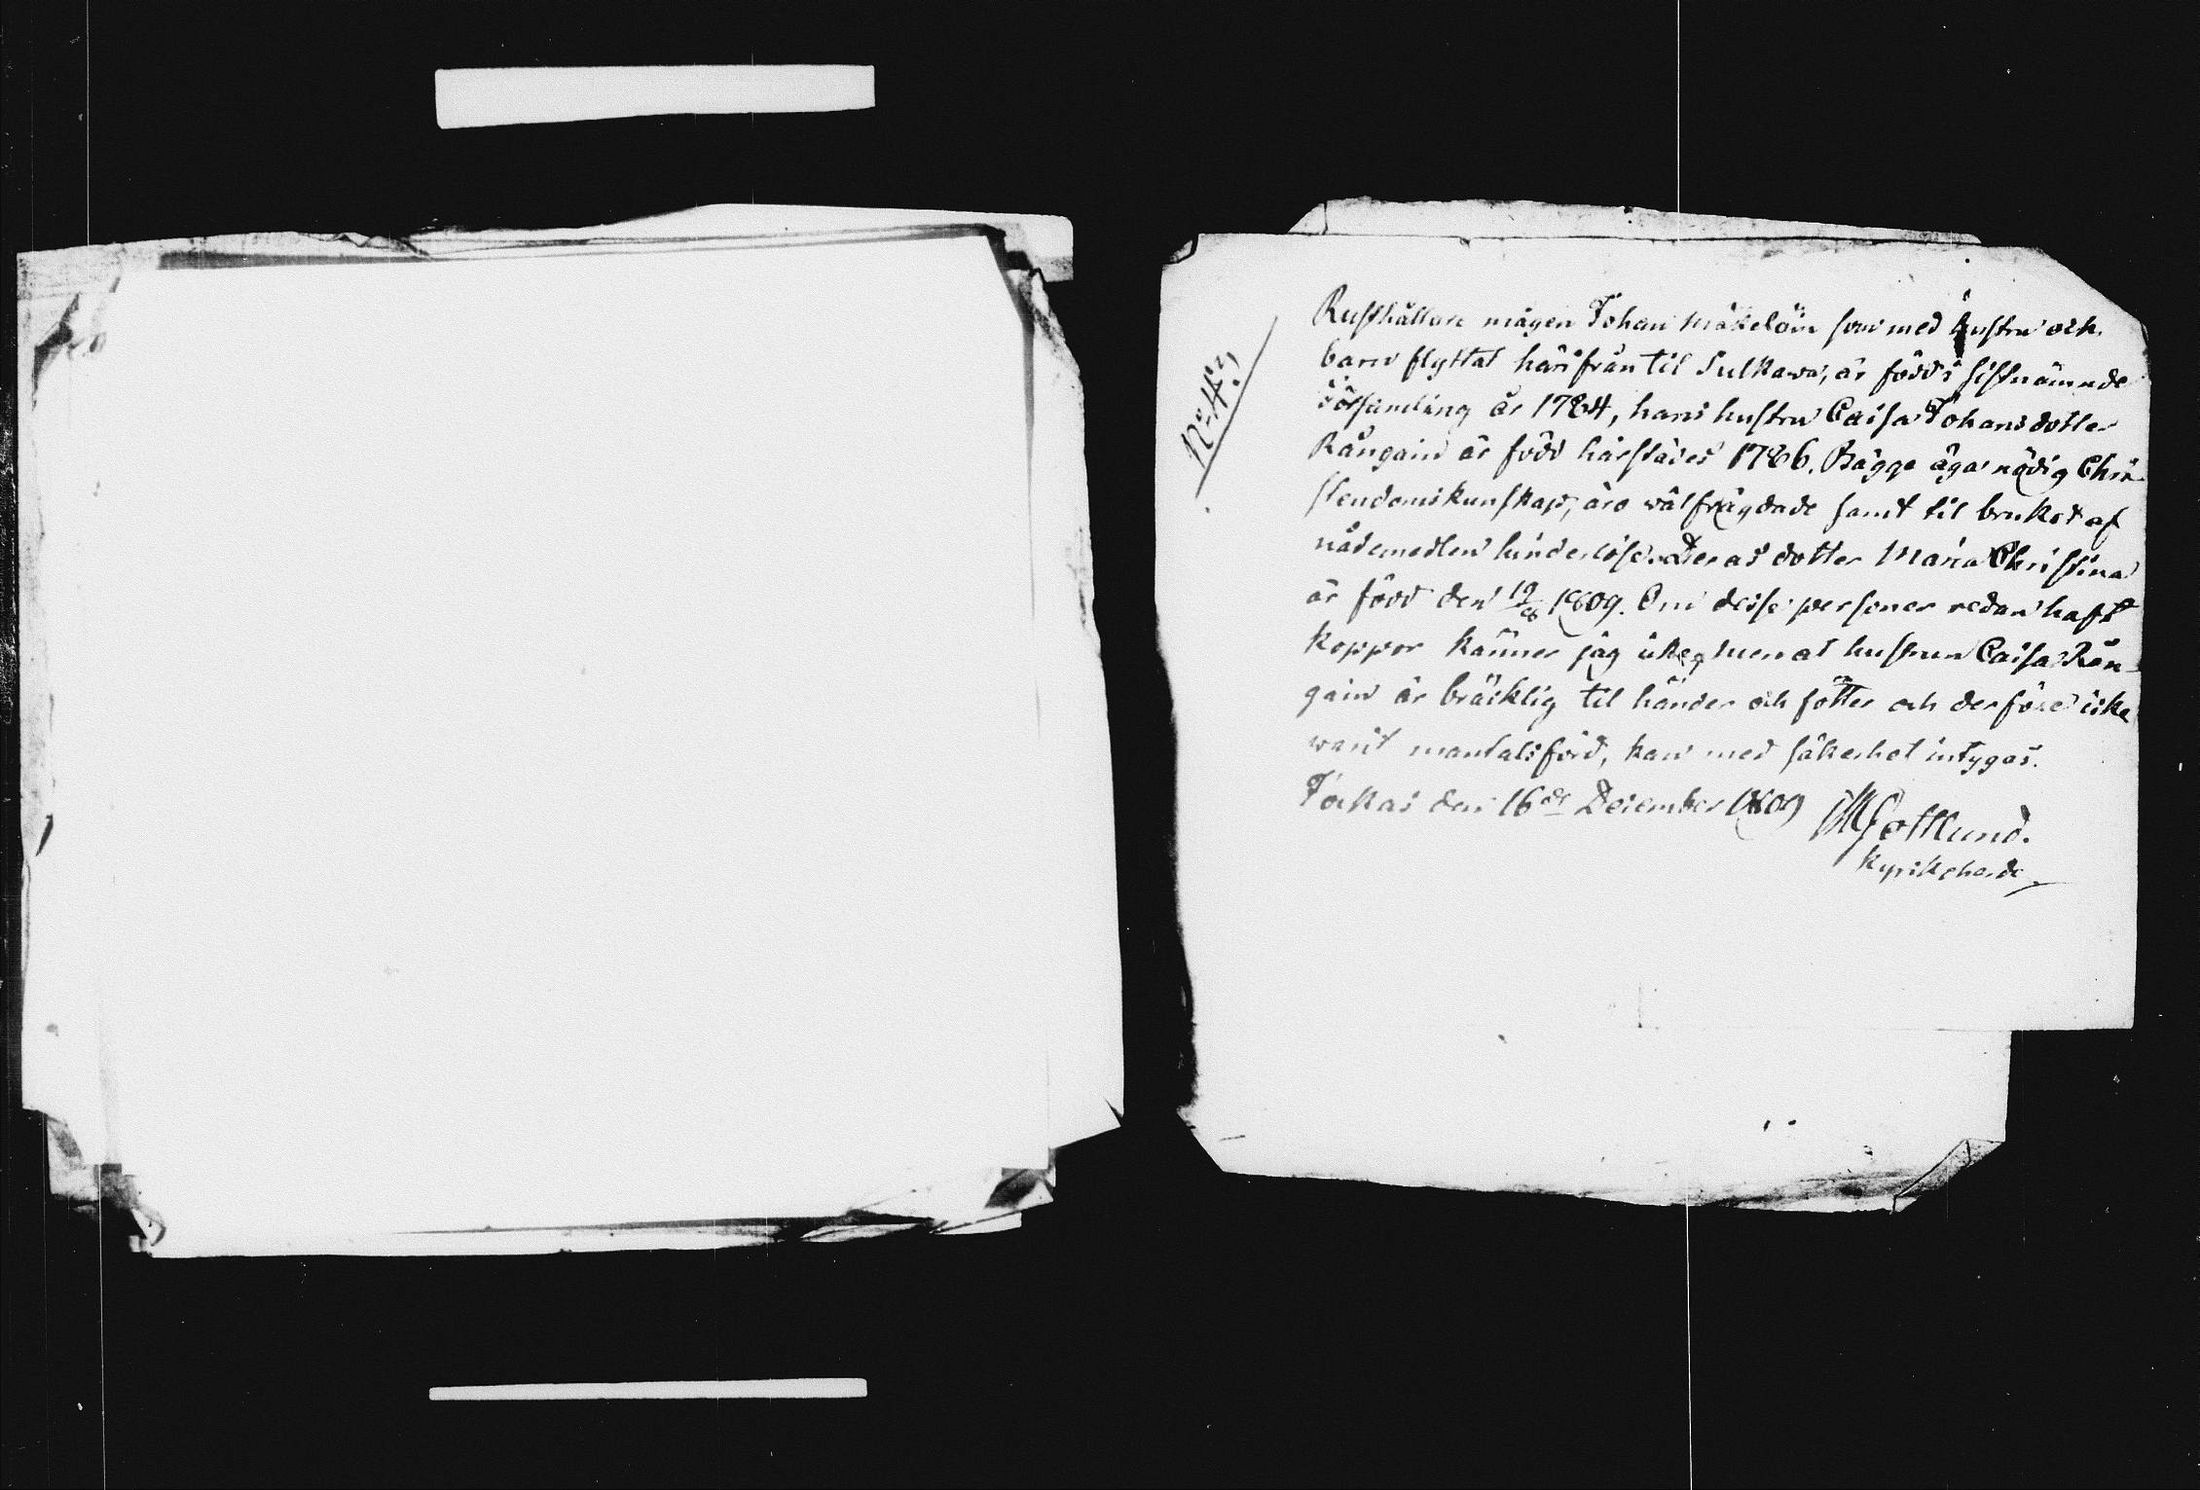 No 43
Rusthållare mågen Johan Mäkeläin som med hustru och
barn flyttat härifrån til Sulkawa, är född i sistnämnde
Församling år 1784, hans hustru Caisa Johansdotter
Rångain är född härstädes 1786. Bägge äga nödig Chri-
stendomskunskap, äro wälfrägdade samt til bruket af
nådemedlen hinderlöse. Deras dotter Maria Christina
är född den 19/8 1809. Om desse personer redan haft
koppor känner jag icke, men at hustrun Caisa Rån-
gain är bräcklig til händer och fötter och derföre icke
warit mantalsförd, kan med säkerhet intygas.
Jockas den 16de December 1809 Gottlund.
Kyrckoherde